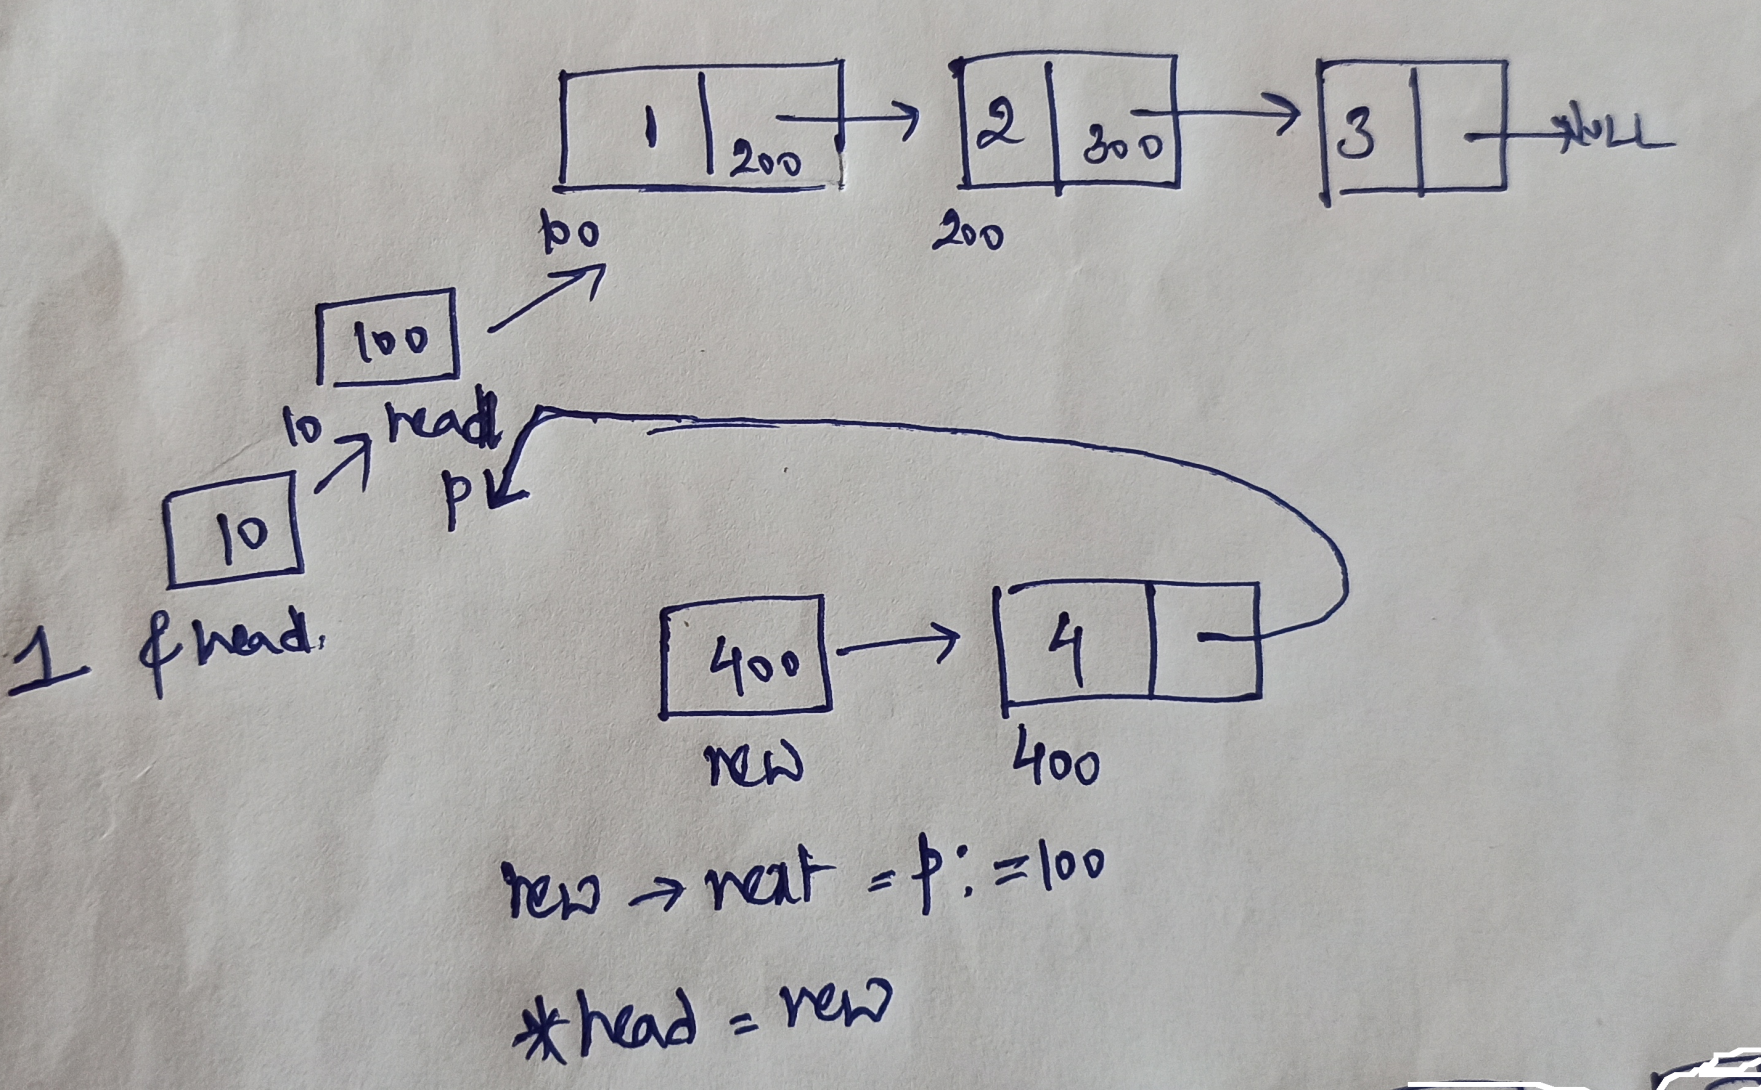 1 200 2 300 3 NULL
100 200
100
10 head
p
10
1 &head.
400 4
new 400
new → next = p; = 100
*head = new